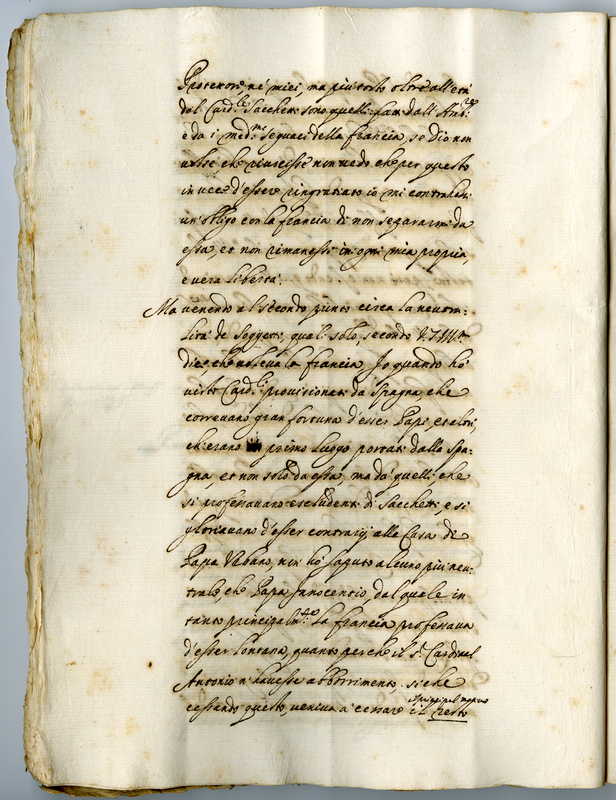 Protettore, né miei, ma più tosto oltre all'età
del Card.le Sacchetti sono quelli fatti dall'Amb.re
e da i med.mi seguaci della francia, se Dio non
volse, che riuscisse non vedo che per questo
in vece d'essere ringratiato io mi contrahessi
un obligo con la francia di non separarmi da
essa, et non rimanessi in ogni mia propria,
e vera libertà.
Ma venendo al secondo punto circa la neutra-
lità de Soggetti, quali solo, secondo V. S. Ill.ma
dice, che voleva la francia Io quando hò
visto Card.li provisionati da Spagna, che
correvano gran fortuna d'esser Papi, et altri,
ch'erano in primo luogo portati dalla Spa-
gna et non solo da essa, ma da quelli che
si professavano escludenti di Sacchetti, e si
gloriavano d'esser contrarij alla Casa di
Papa Urbano, non hò saputo alcuno più neu-
trale, che Papa Innocentio, dal quale in
tanto principalm.te la francia professava
d'esser lontana, quanto perche il s.r Cardinal
Antonio n'havesse abborrimento, si che
cessando questo, veniva a cessare il principal motivo
il resto